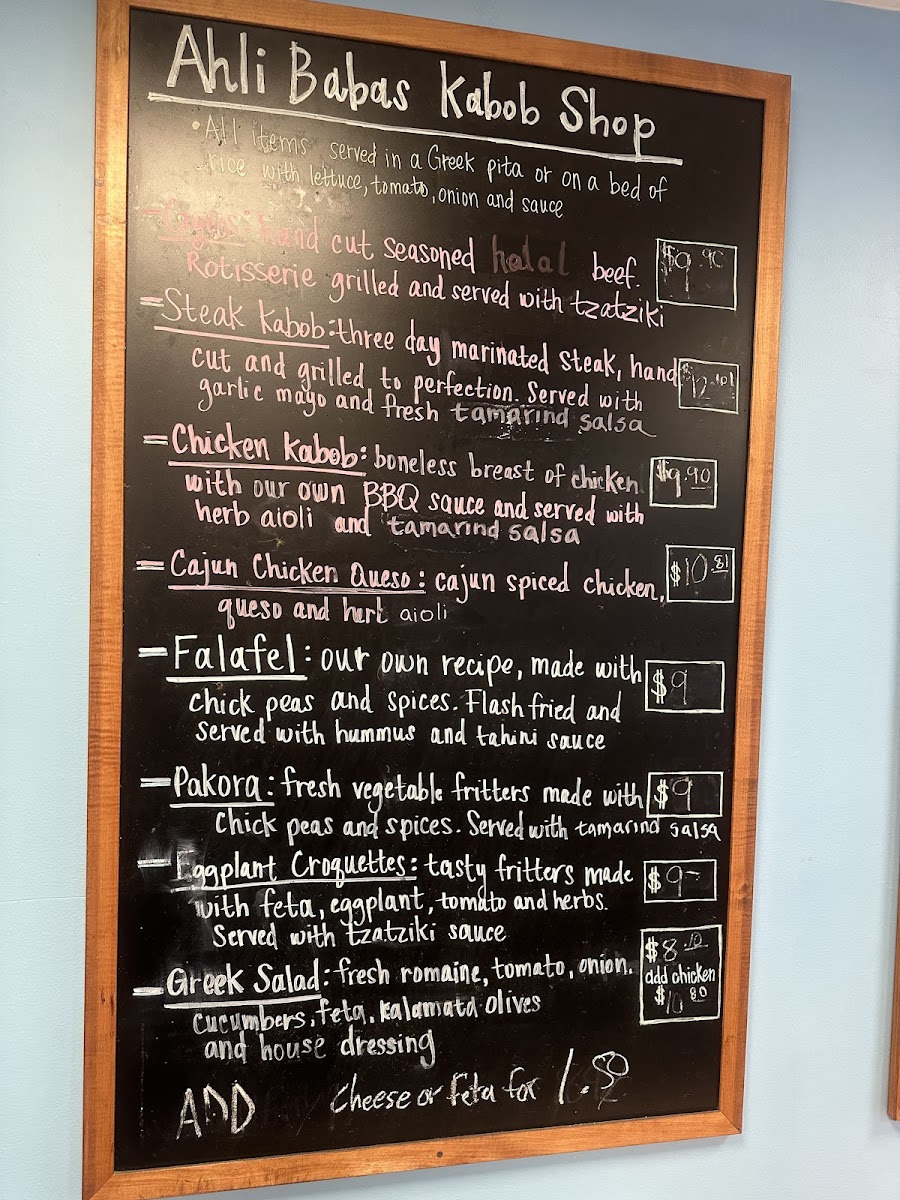 Ahli Babas Kabob Shop
• All items served in a Greek pita or on a bed of
rice with lettuce, tomato, onion and sauce
hand cut seasoned halal beef. $9.90
Rotisserie grilled and served with tzatziki
= Steak Kabob: three day marinated steak, hand
cut and grilled to perfection. Served with
garlic mayo and fresh tamarind salsa
= Chicken Kabob: boneless breast of chicken $9.90
with our own BBQ sauce and served with
herb aioli and tamarind salsa
= Cajun Chicken Queso: cajun spiced chicken, $10.81
queso and herb aioli
= Falafel: our own recipe, made with $9
chick peas and spices. Flash fried and
served with hummus and tahini sauce
= Pakora: fresh vegetable fritters made with $9
chick peas and spices. Served with tamarind salsa
= Eggplant Croquettes: tasty fritters made $9-
with feta, eggplant, tomato and herbs.
Served with tzatziki sauce
- Greek Salad: fresh romaine, tomato, onion. $8.10
cucumbers, feta, kalamata olives add chicken
and house dressing $10.80
ADD Cheese or feta for 1.80